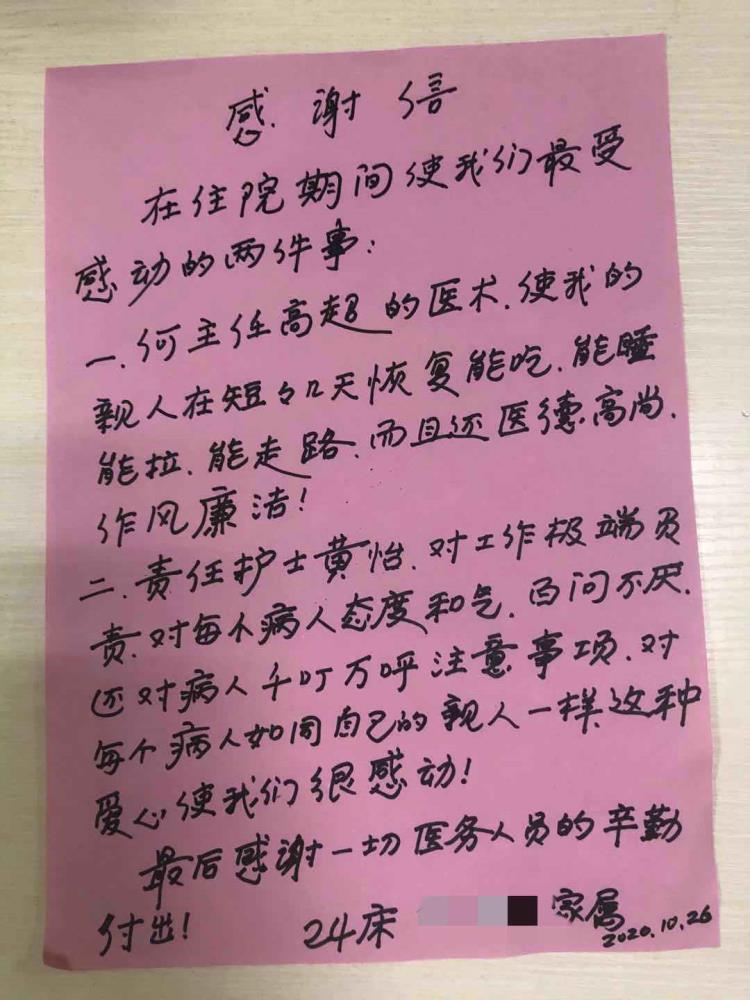 感谢信
在住院期间使我们最受
感动的两件事:
一.何主任高超的医术.使我的
亲人在短々几天恢复能吃.能睡
能拉.能走路.而且还医德高尚.
作风廉洁!
二.责任护士黄怡.对工作极端员
责.对每个病人态度和气.百问不厌.
还对病人千叮万呼注意事项.对
每个病人如同自己的亲人一样.这种
爱心使我们很感动!
最后感谢一切医务人员的辛勤
付出!
24床 家属
2020.10.26